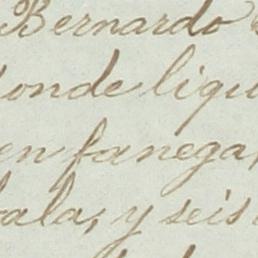 Bernardo
onde liqu
en fanega,
ala, y seis